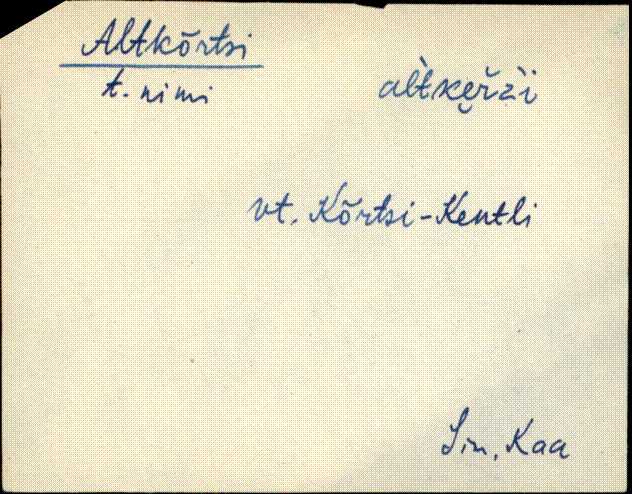 Altkõrtsi
t. nimi
al̀tke̮ržì
vt. Kõrtsi-Kentli
Sin, Kaa